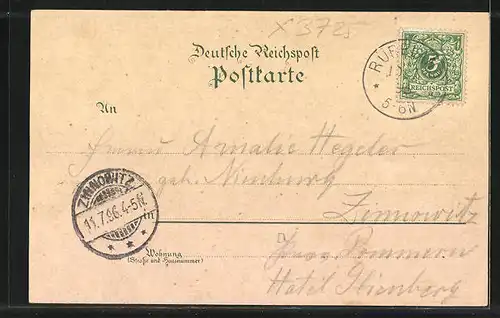 X 3725
Deutsche Reichspost
Postkarte
5
REICHSPOST
5-6N
An
Amalie Hegeler
geb. Nienburg
ZINNOWITZ
11.7.96.4-5N.
in
Zinnowitz
Wohnung
(Straße und Hausnummer)
Pommern
Hotel